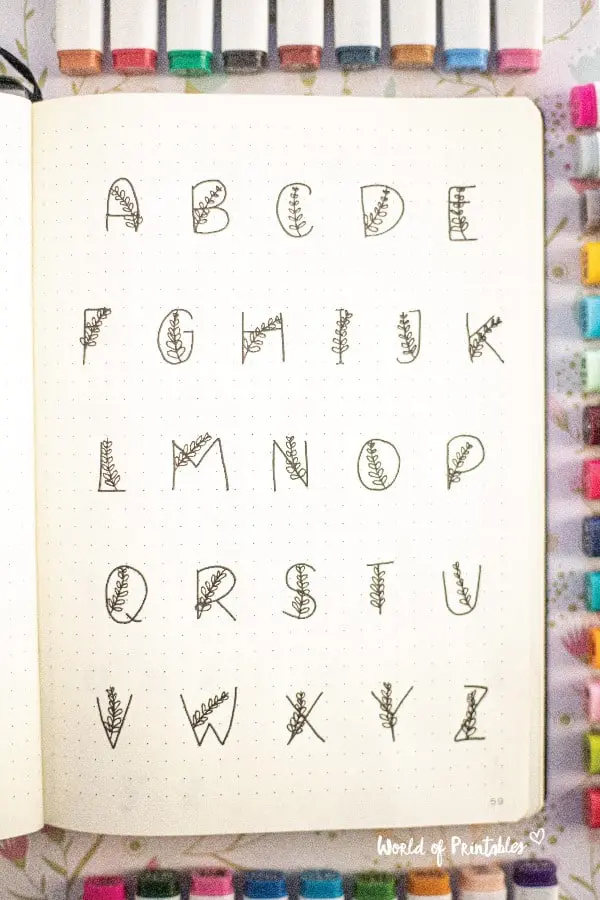 A B C D E
F G H I J K
L M N O P
Q R S T U
V W X Y Z
59
World of Printables